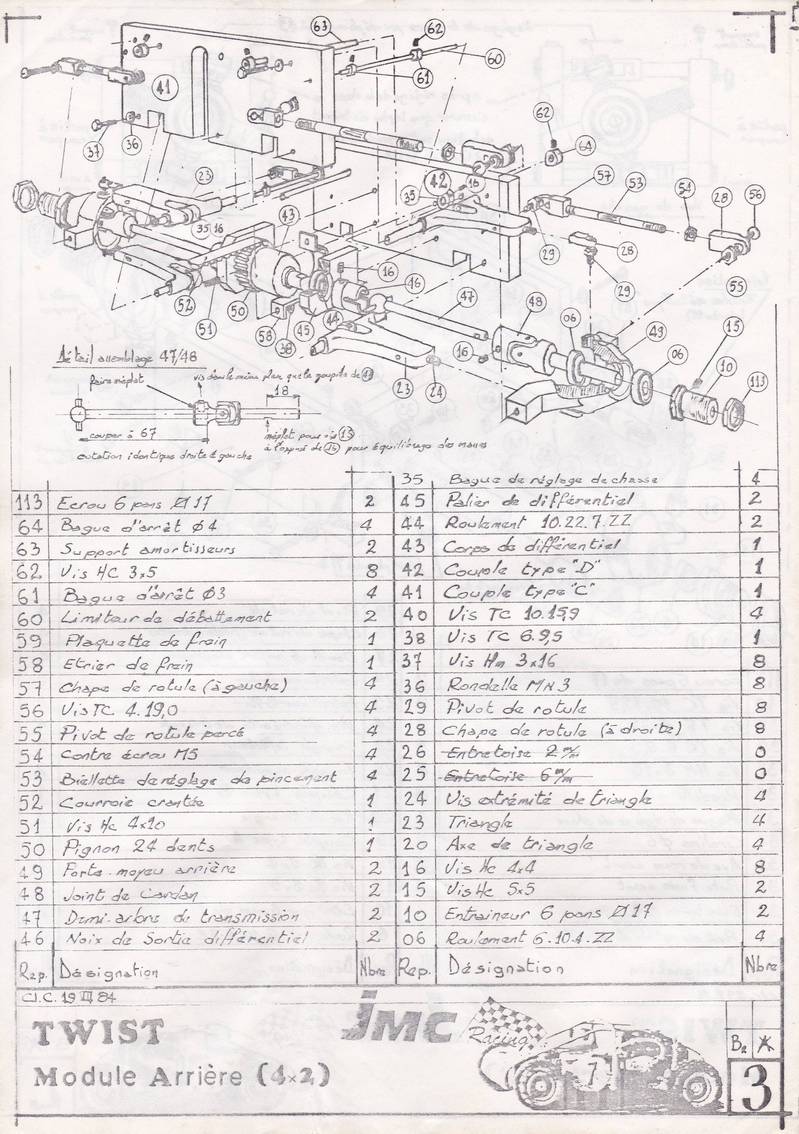 63
62
60
61
41
62
64
37
36
23
42
16
35
57
53
54
28
56
35 16
43
29
28
29
55
52
51
50
16
46
47
48
49
58
38
45
44
16
06
06
15
10
113
23
24
Détail assemblage 47/48
faire méplat
vis dans le même plan que la goupille de 49
18
couper à 67
méplat pour vis 15
à l'opposé de 16 pour équilibrage des masses
cotation identique droite & gauche
35 Bague de réglage de chasse 4
113 Ecrou 6 pans Ø17 2 45 Palier de différentiel 2
64 Bague d'arrêt Ø4 4 44 Roulement 10.22.7.ZZ 2
63 Support amortisseurs 2 43 Corps de différentiel 1
62 Vis HC 3x5 8 42 Couple type "D" 1
61 Bague d'arrêt Ø3 4 41 Couple type "C" 1
60 Limiteur de débattement 2 40 Vis TC 10.15,9 4
59 Plaquette de frein 1 38 Vis TC 6.9,5 1
58 Etrier de frein 1 37 Vis Hm 3x16 8
57 Chape de rotule (à gauche) 4 36 Rondelle MN3 8
56 Vis TC 4.19,0 4 29 Pivot de rotule 8
55 Pivot de rotule percé 4 28 Chape de rotule (à droite) 8
54 Contre écrou M5 4 26 Entretoise 2 m/m 0
53 Biellette de réglage de pincement 4 25 Entretoise 6 m/m 0
52 Courroie crantée 1 24 Vis extrémité de triangle 4
51 Vis Hc 4x10 1 23 Triangle 4
50 Pignon 24 dents 1 20 Axe de triangle 4
49 Porte-moyeu arrière 2 16 Vis Hc 4x4 8
48 Joint de Cardan 2 15 Vis Hc 5x5 2
47 Demi-arbre de transmission 2 10 Entraineur 6 pans Ø17 2
46 Noix de Sortie différentiel 2 06 Roulement 6.10.4.ZZ 4
Rep. Désignation Nbre Rep. Désignation Nbre
C.I.C. 19 III 84
TWIST
JMC
Racing
7
Module Arrière (4x2)
3